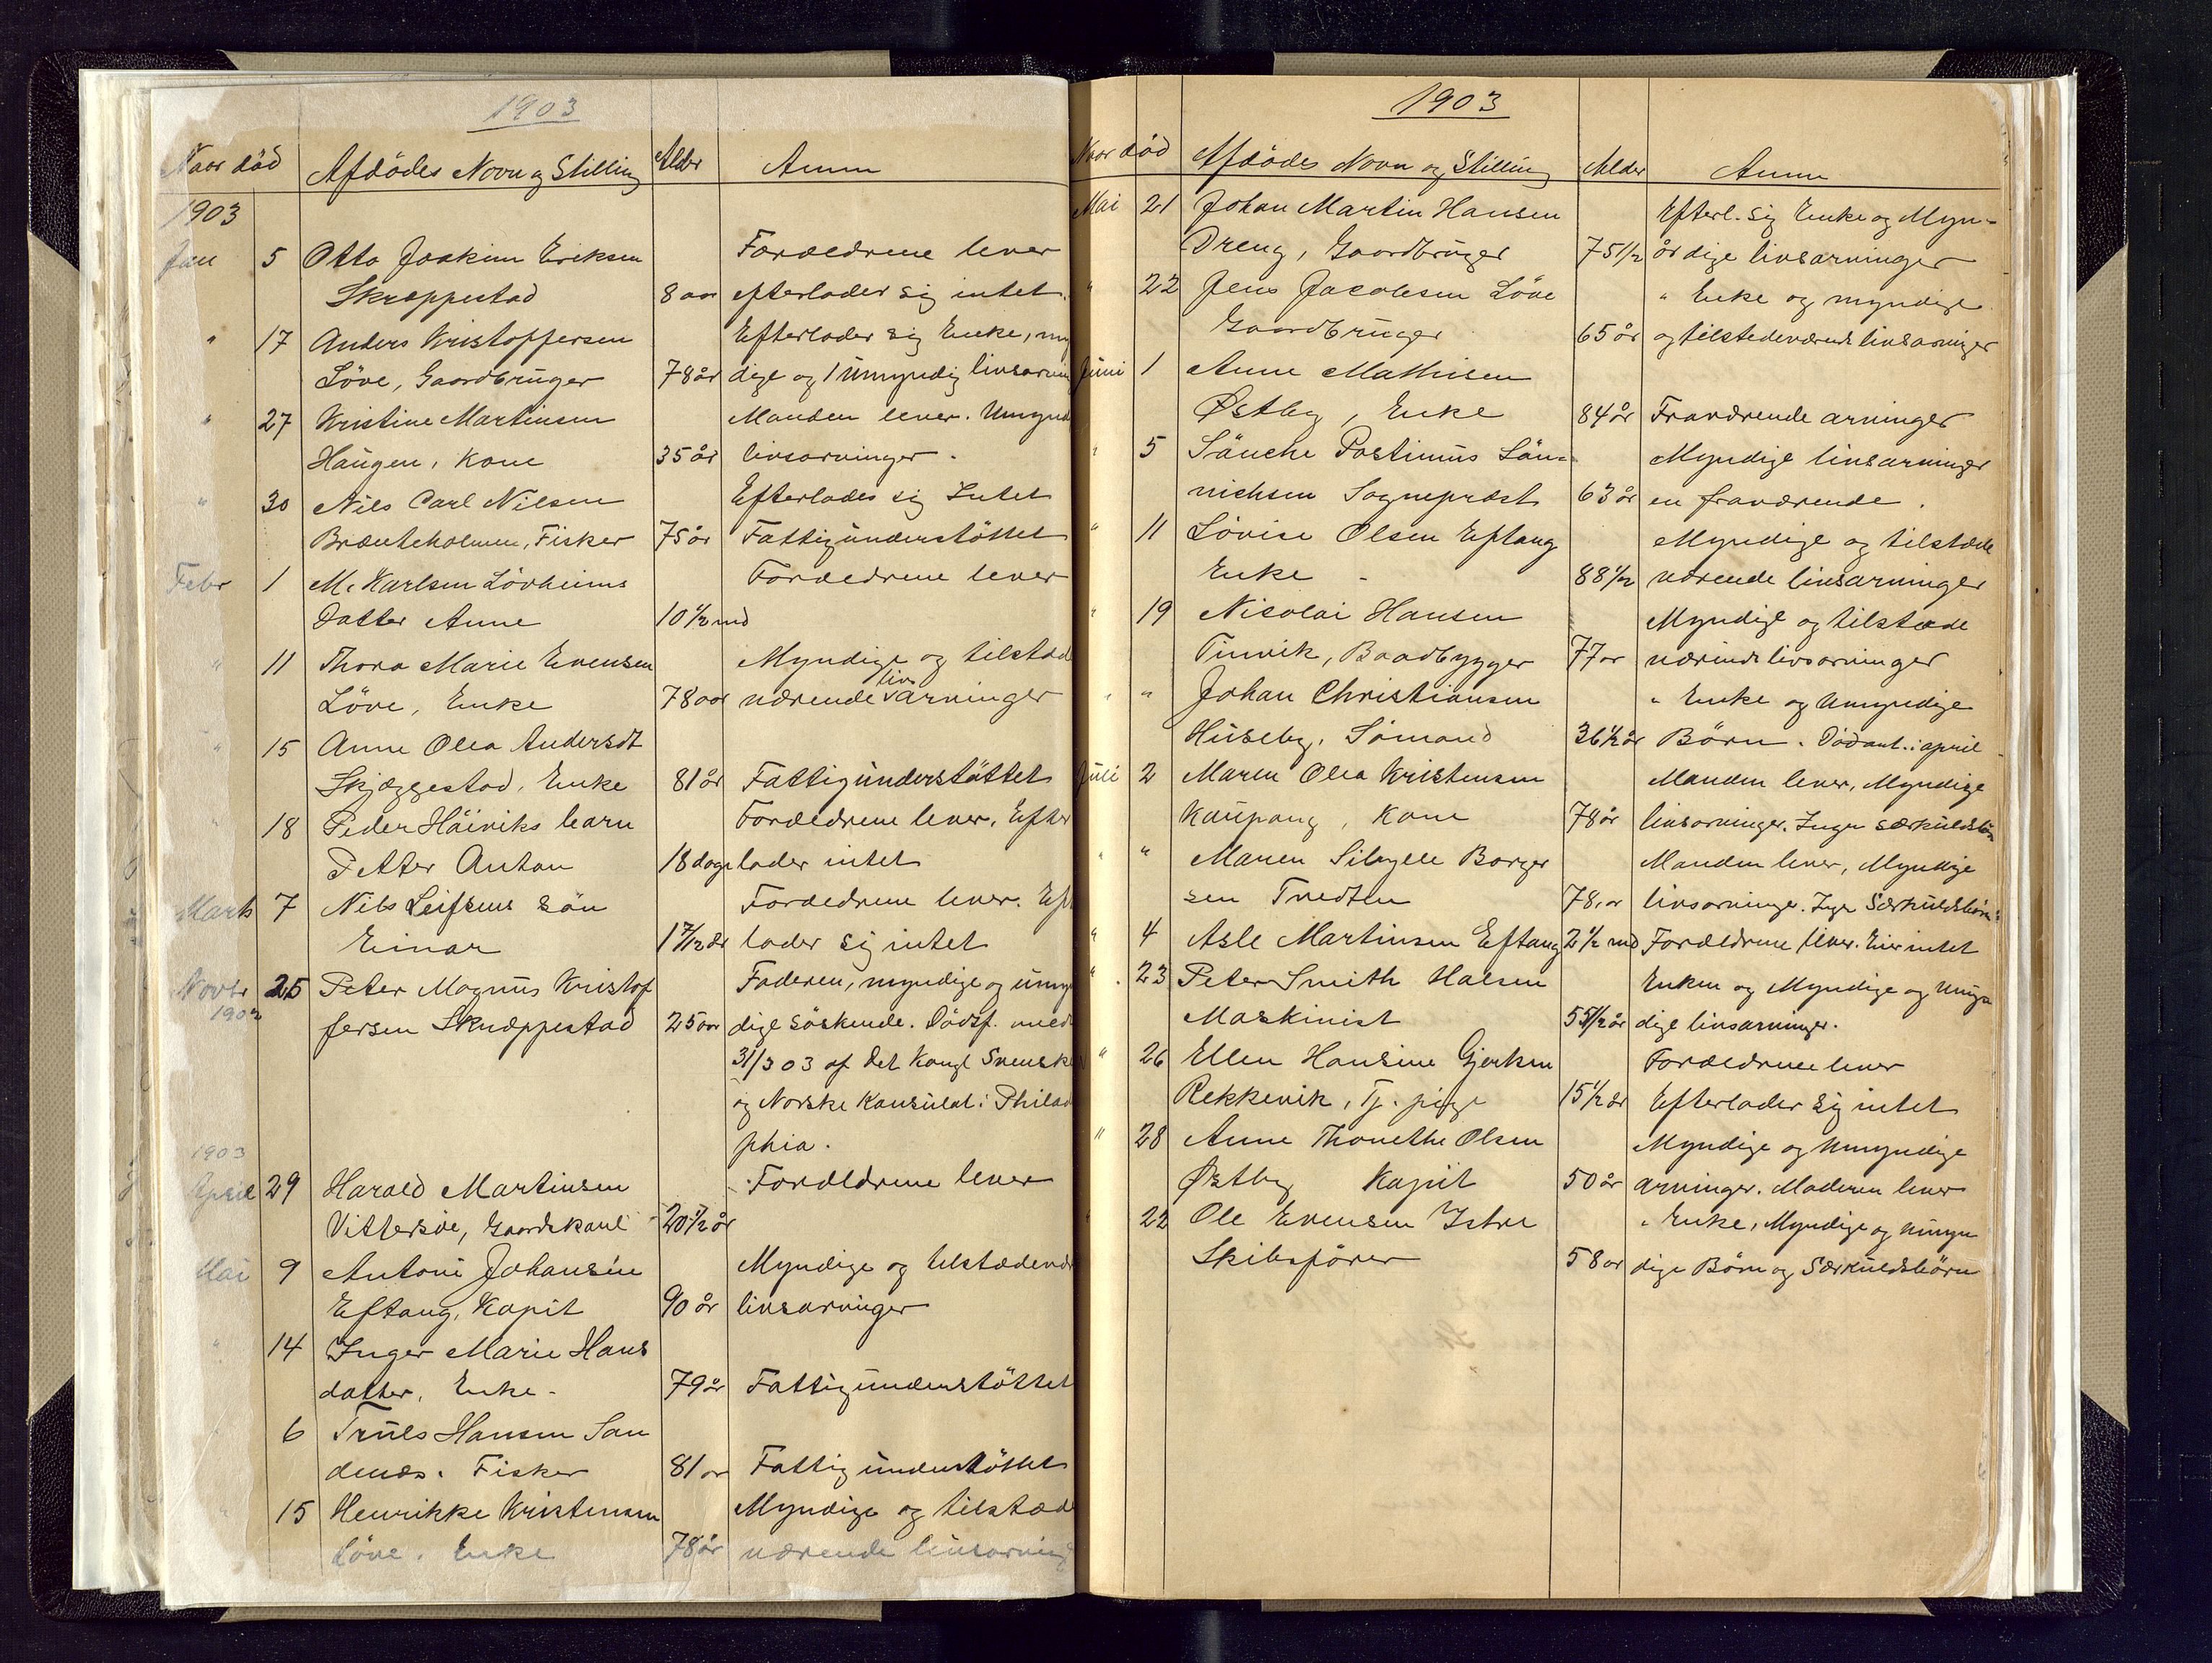 1903
Naar död Afdödes Navn og Stilling Alder Anm
1903
Jan 5 Otto Joakim Eriksen Forældrene lever
Skræppestad 8 aar efterlader sig intet.
" 17 Anders Kristoffersen Efterlader sig Enke, my
Löve, Gaardbruger 78 år dige og 1 umyndig livsarvin
" 27 Kristine Martinsen Manden lever. Umynd
Haugen, Kone 35 år livsarvinger.
" 30 Nils Carl Nilsen Efterlades sig Intet
Bræuteholmen, Fisker 75 år Fattigunderstöttet
Febr 1 M. Karlsen Lövheims Forældrene lever
Datter Anne 10 1/2 md
" 11 Thora Marie Evensen Myndige og tilstæd
Löve, Enke 78 aar værende livsarvinger
" 15 Anne Olea Andersdt
Skjæggestad, Enke 81 år Fattigunderstöttet
" 18 Peder Håiviks barn Forældrene lever. Efter
Petter Anton 18 dage lader intet
Marts 7 Nils Leifsens sön Forældrene lever. Eft
Einar 1 7/12 år lader sig intet
Novbr 25 Peter Magnus Kristof Faderen, myndige og umyn
1902 fersen Skræppestad 25 aar dige söskende. Dödsf. med
31/3 03 af det Kongl Svenske
og Norske Konsulat i Philad
phia.
1903
April 29 Harald Martinsen Forældrene lever
Vittersöe, Gaardskarl 20 1/2 år
Mai 9 Antoni Johansen Myndige og tilstædevær
Eftang, Kapit 90 år livsarvinger
" 14 Inger Marie Hans
datter, Enke. 79 år Fattigunderstöttet
6 Truls Hansen San
denæs. Fisker 81 år Fattigunderstöttet
15 Henrikke Kristensen Myndige og tilstæd
Löve. Enke 78 år værende livsarving
1903
Naar död Afdödes Navn og Stilling Alder Anm
Mai 21 Johan Martin Hansen Efterl. sig Enke og Myn-
Dreng, Gaardbruger 75 1/2 år dige livsarvinger
" 22 Jens Jacobsen Löve " Enke og myndige
Gaardbruger 65 år og tilstedeværende livsarvinger
Juni 1 Anne Mathisen
Østby, Enke 84 år Fraværende arvinger
" 5 Sönche Postimus Sön- Myndige livsarvinger
nichsen Sogneprest 63 år en fraværende.
" 11 Lövise Olsen Eftang Myndige og tilstæde
Enke 88 1/2 værende livsarvinger
" 19 Nicolai Hansen Myndige og tilstæde
Tinvik, Baadbygger 77 år værende livsarvinger
" " Johan Christiansen " Enke og Umyndige
Huseby, Sömand 36 1/2 år Börn. Död ant. i april
Juli 2 Maren Olea Kristensen Manden lever, Myndige
Kaupang, Kone 78 år livsarvinger. Ingen særkuldsbörn
" " Maren Sibylle Borger Manden lever, Myndige
sen Tvedten 78 år livsarvinge. Ingen Særkuldsbörn
" 4 Asle Martinsen Eftang 2 1/2 md Forældrene lever. Eier intet
" 23 Peter Smith Halsen Enken og Myndige og Umyn
Maskinist 55 1/2 år dige livsarvinger.
" 26 Ellen Hansine Gjerksen Forældrene lever
Rekkevik, Tj. pige 15 1/2 år Efterlader sig intet
" 28 Anne Thonethe Olsen Myndige og Umyndige
Østby Kapit 50 år arvinger. Moderen lever
22 Ole Evensen Istre " Enke, Myndige og umyn
Skibsförer 58 år dige Börn og Særkuldsbörn